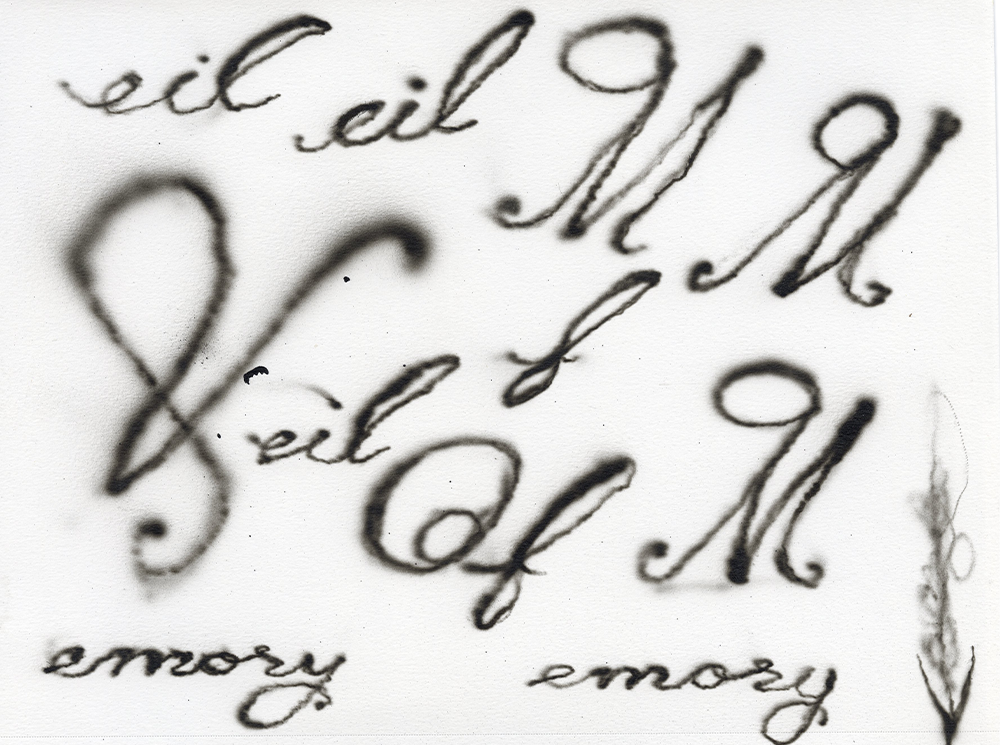 eil eil M M
V f
eil Of M
emory emory